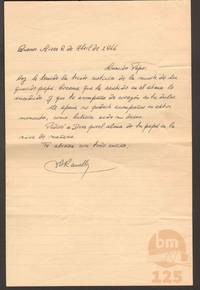 Buenos Aires 2 de Abril de 1966
Querido Pepe:
Hoy he tenido la triste noticia de la muerte de tu
querido papá. Créeme que lo he sentido en el alma
y que te acompaño de corazón en tu dolor.
no poderte acompañar en estos
momentos, como hubiera sido mi deseo.
Pediré a Dios por el alma de tu papá en la
misa de mañana.
Te abraza con todo cariño.
bm
125